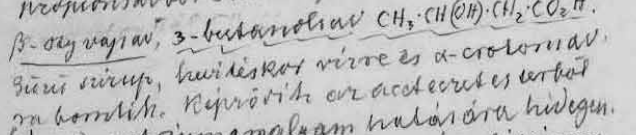 β-oxyvajsav, 3-butanolsav CH₃·CH(OH)·CH₂·CO₂H.
Sűrű szirup, hevítéskor vízre és α-crotonsav.
ra bomlik. Képződik az acetecet es
hatására hidegen.